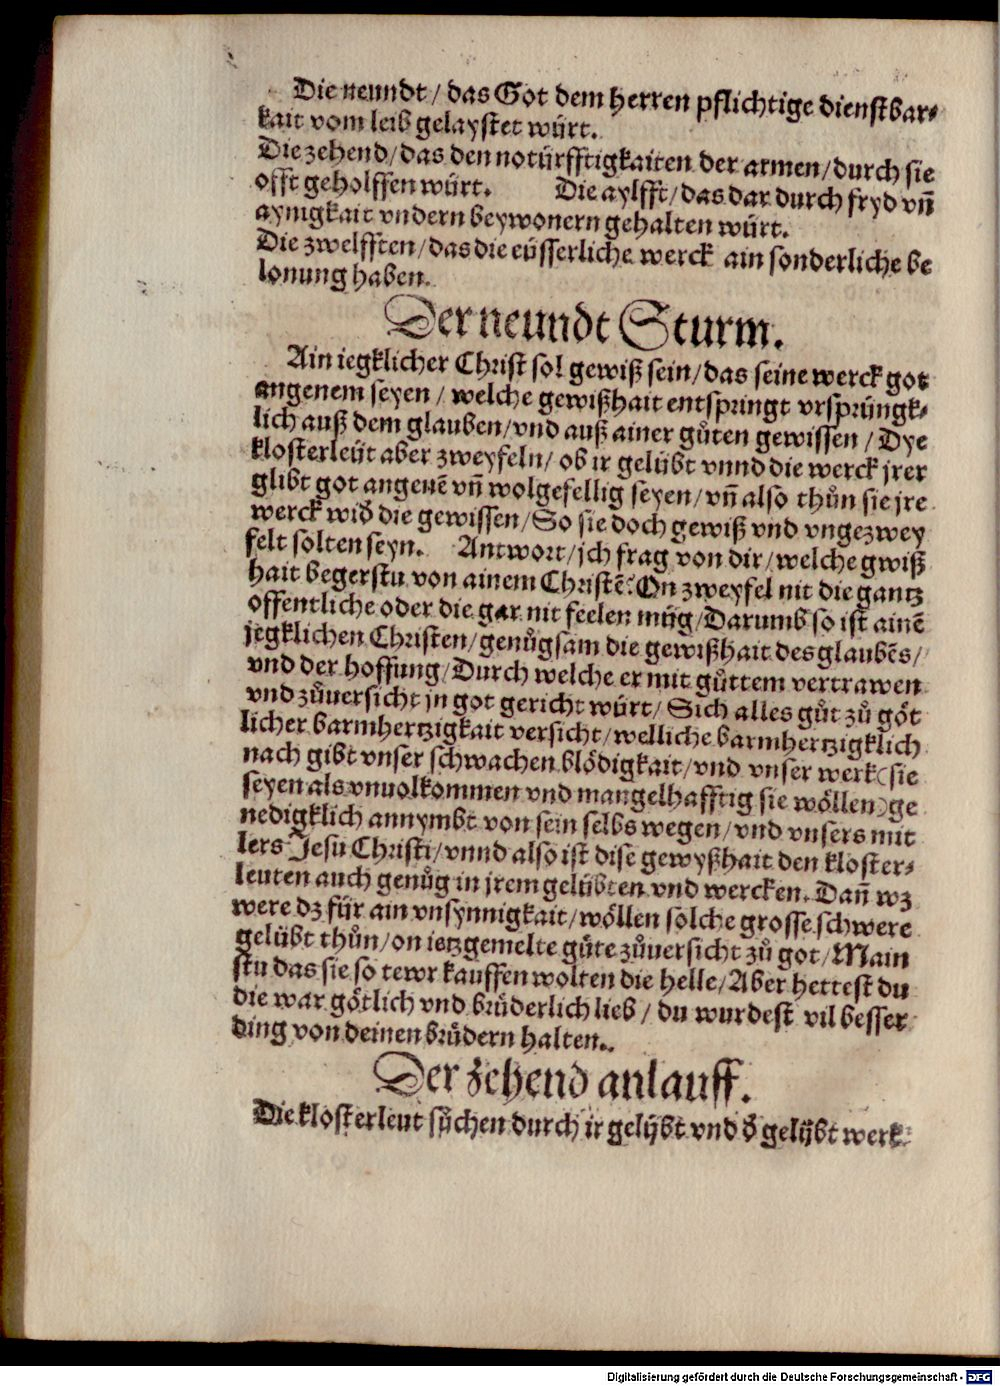 Die neundt / das Got dem herren pflichtige dienstbar⸗
kait vom leib gelaystet würt.
Die zehend / das den notürfftigkaiten der armen / durch sie
offt geholffen würt. Die aylfft / das dar durch fryd vñ
aynigkait vndern beywonern gehalten würt.
Die zwelfften / das die eüsserliche werck ain sonderliche be
lonung haben.
Der neundt Sturm.
Ain iegklicher Christ sol gewiß sein / das seine werck got
angenem seyen / welche gewißhait entspringt vrsprüngk⸗
lich auß dem glauben / vnd auß ainer gůten gewissen / Dye
klosterleüt aber zweyfeln / ob ir gelübt vnnd die werck jrer
glibt got angenē vñ wolgefellig seyen / vñ also thůn sie jre
werck wid̄ die gewissen / So sie doch gewiß vnd vngezwey
felt solten seyn. Antwort / jch frag von dir / welche gwiß
hait begerstu von ainem Christē? On zweyfel nit die gantz
offentliche oder die gar nit feelen müg / Darumb so ist ainē
jegklichen Christen / genůgsam die gewißhait des glaubēs /
vnd der hoffung / Durch welche er mit gůttem vertrawen
vnd zůuersicht jn got gericht würt / Sich alles gůt zů göt
licher barmhertzigkait versicht / welliche barmhertzigklich
nach gibt vnser schwachen blödigkait / vnd vnser werk (sie
seyen als vnuolkommen vnd mangelhafftig sie wöllen) ge
nedigklich annymbt von sein selbs wegen / vnd vnsers mit
lers Jesu Christi / vnnd also ist dise gewyßhait den kloster⸗
leuten auch genůg in jrem gelübten vnd wercken. Dañ wz
were dz für ain vnsynnigkait / wöllen solche grosse schwere
gelübt thůn / on ietzgemelte gůte zůuersicht zů got / Main
stu das sie so tewr kauffen wolten die helle / Aber hettest du
die war götlich vnd brůderlich lieb / du wurdest vil besser
ding von deinen brůdern halten.
Der zehend anlauff.
Die klosterleut sůchen durch ir gelübt vnd d̄ gelübt werk
Digitalisierung gefördert durch die Deutsche Forschungsgemeinschaft - DFG